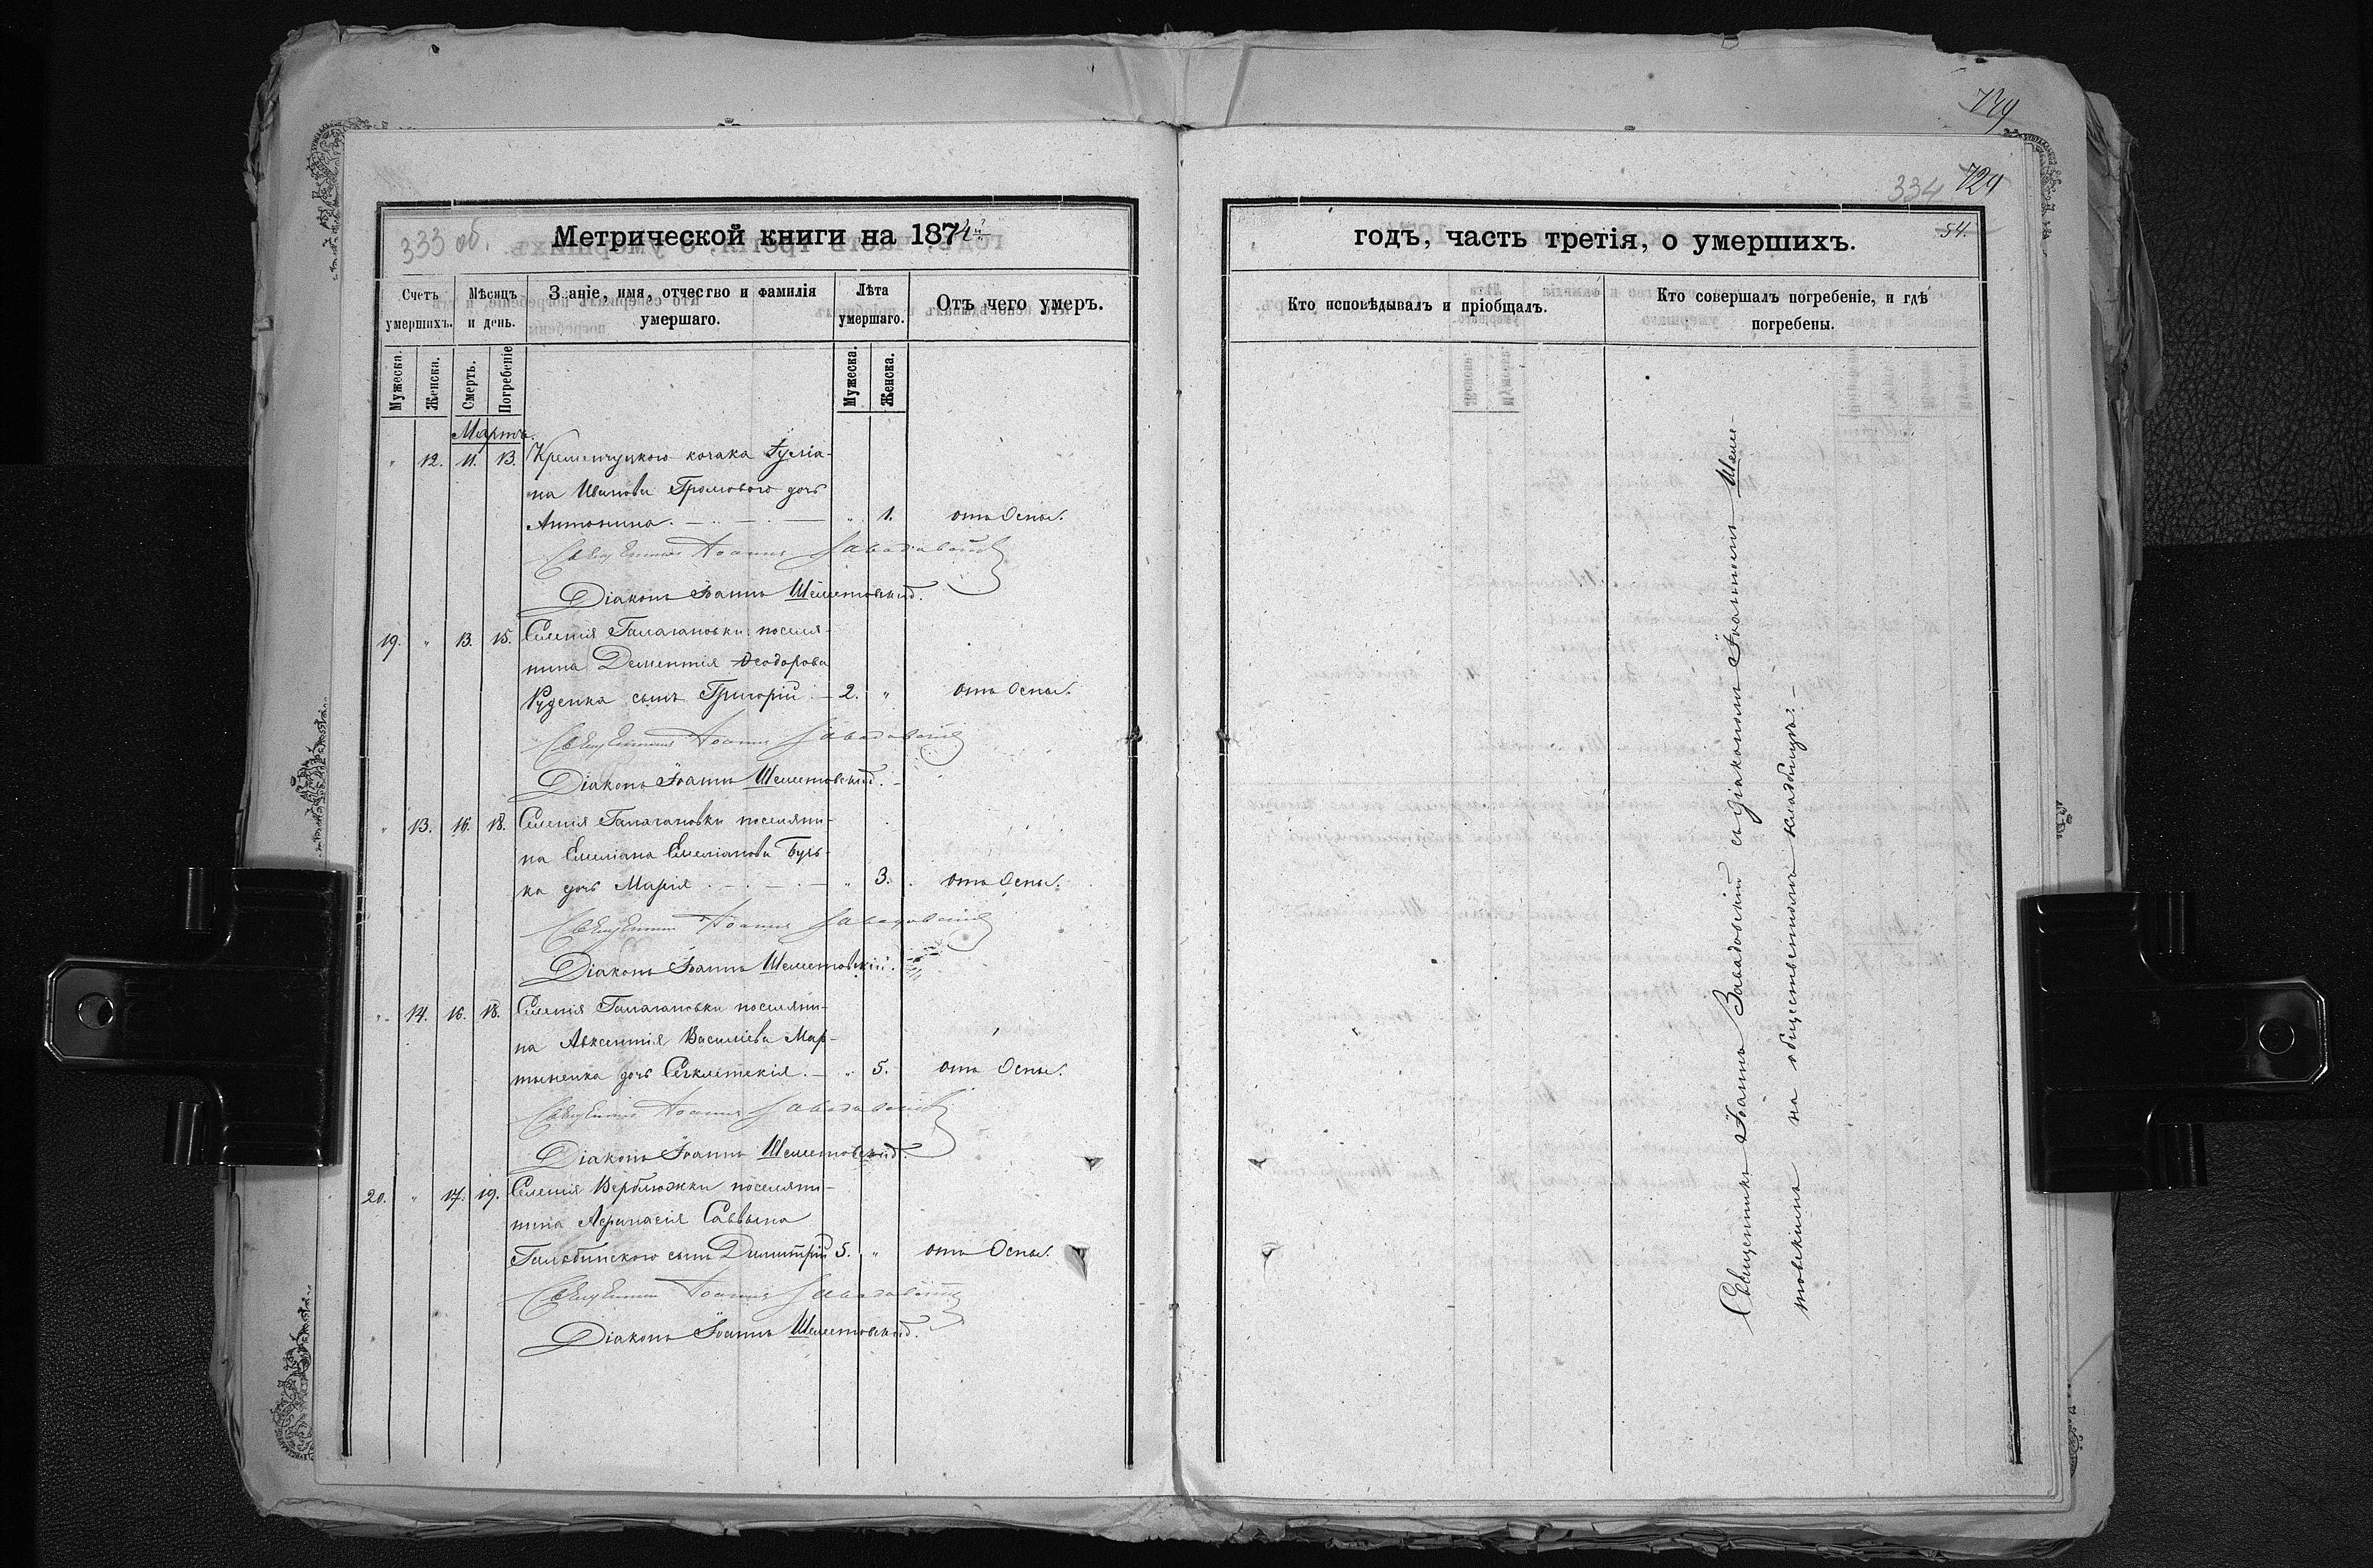 739
334 729
333 об. Метрической книги на 1874й
годъ, часть третія, о умершихъ. 54.
Счетъ умершихъ.
Мѣсяцъ и день.
Званіе, имя, отчество и фамилія умершаго.
Лѣта умершаго.
Отъ чего умеръ.
Кто исповѣдывалъ и пріобщалъ.
Кто совершалъ погребеніе, и гдѣ погребены.
Мужеска. Женска. Смерть. Погребеніе Мужеска. Женска.
Мартъ.
" 12. 11. 13. Кременчуцкого козака Іуліа-
на Иванова Громового дочь
Антонина. " 1. отъ Оспы.
Священникъ Іоаннъ Завадовскій
Діаконъ Іоаннъ Шеметовскій.
19. " 13. 15. Селенія Галагановки поселя-
нина Дементія Ѳеодорова
Руденка сынъ Григорій. 2. " отъ Оспы.
Священникъ Іоаннъ Завадовскій
Діаконъ Іоаннъ Шеметовскій.
" 13. 16. 18. Селенія Галагановки поселяни-
на Емеліана Емеліанова Буль-
ка дочь Марія " 3. отъ Оспы.
Священникъ Іоаннъ Завадовскій
Діаконъ Іоаннъ Шеметовскій.
" 14. 16. 18. Селенія Галагановки поселяни-
на Авксентія Василіева Мар-
тыненка дочь Секлетекія. " 5. отъ Оспы.
Священникъ Іоаннъ Завадовскій
Діаконъ Іоаннъ Шеметовскій.
20. " 17. 19. Селенія Верблюжки поселяни-
нина Афанасія Саввына
Гальбинского сынъ Димитрій 5. " отъ Оспы.
Священникъ Іоаннъ Завадовскій
Діаконъ Іоаннъ Шеметовскій.
Священникъ Іоаннъ Завадовскій съ діакономъ Іоанномъ Шеме-
товскимъ на общественномъ кладбищѣ.